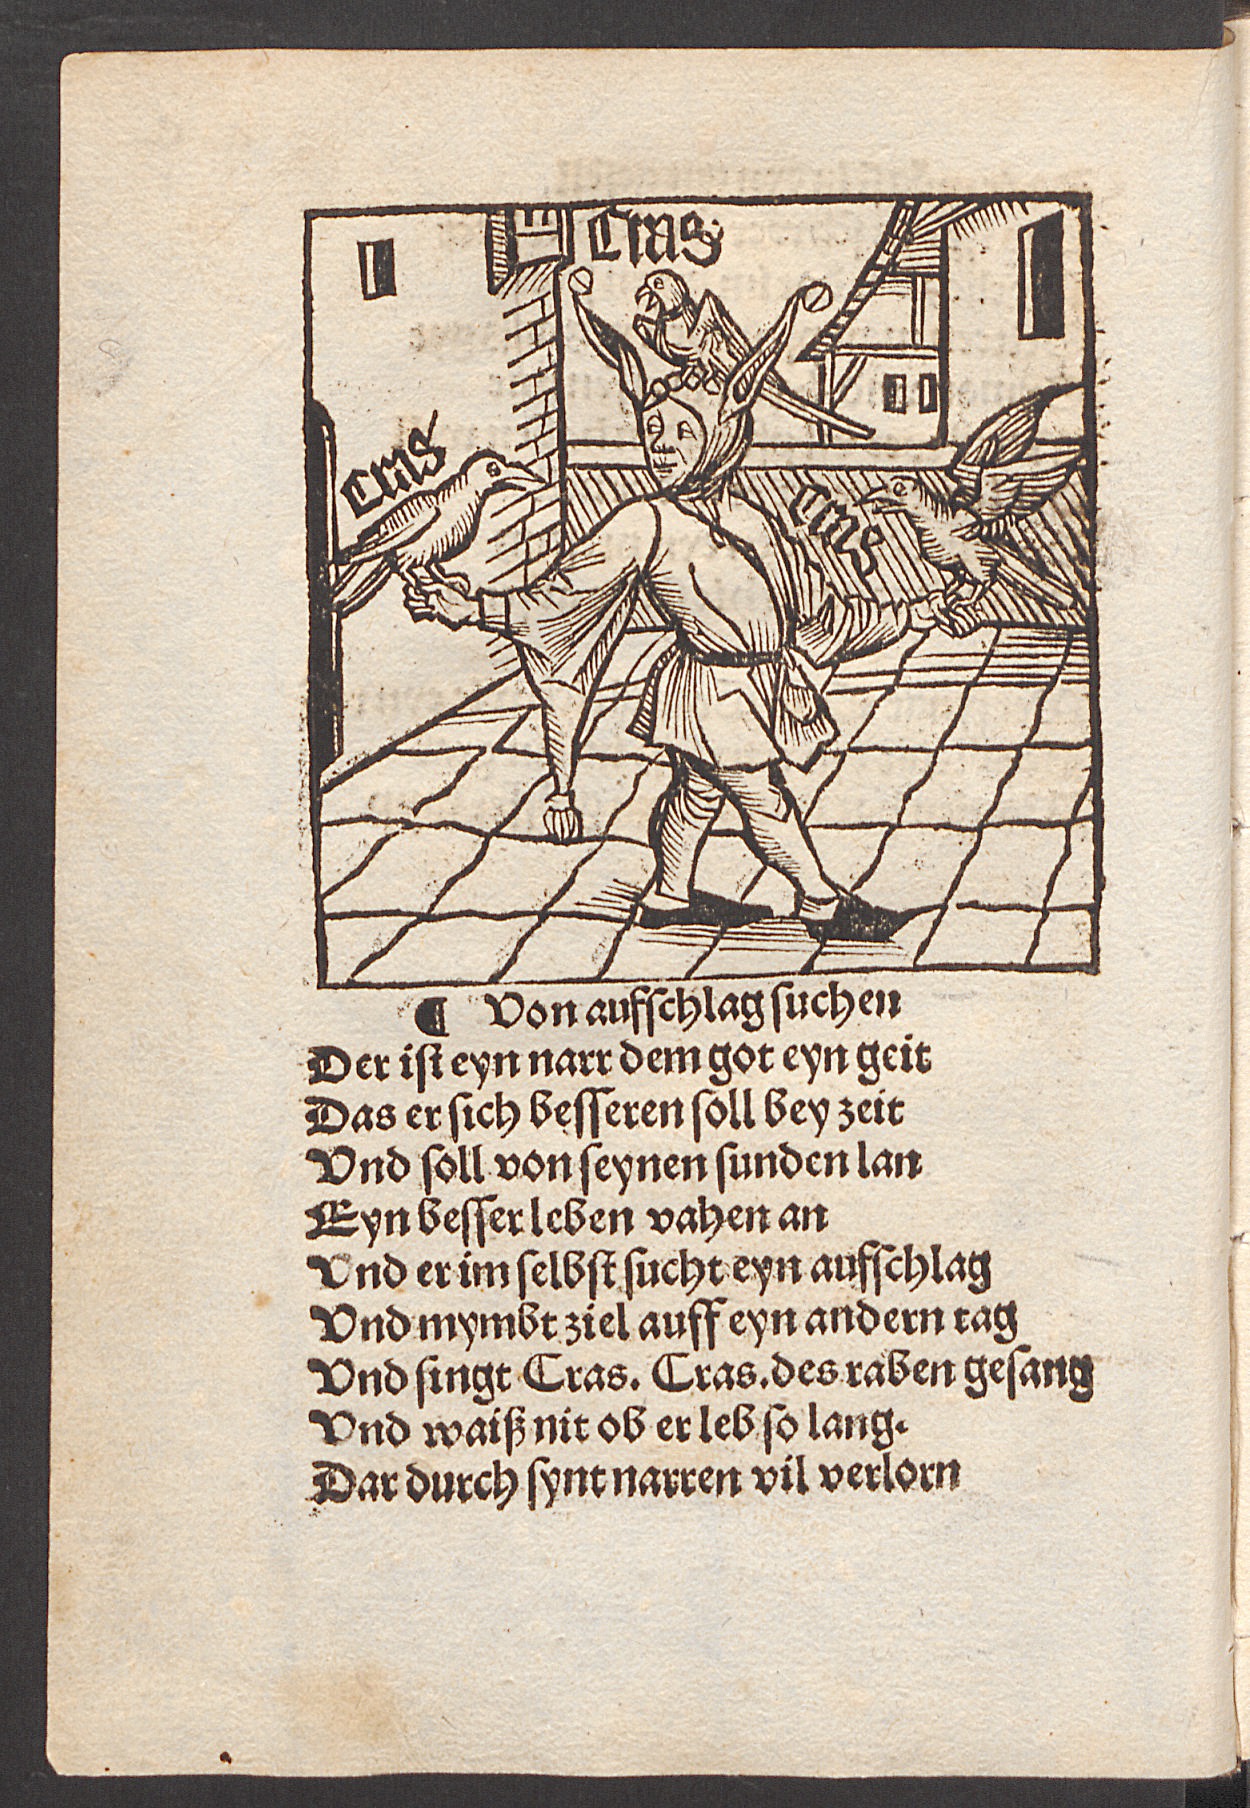 Cras
cras
cras
¶ Von aufſchlag ſuchen
Der iſt eyn narr dem got eyn geit
Das er ſich beſſeren ſoll bey zeit
Vnd ſoll von ſeynen ſunden lan
Eyn beſſer leben vahen an
Vnd er im ſelbſt ſucht eyn aufſchlag
Vnd mymbt ziel auff eyn andern tag
Vnd ſingt Cras. Cras. des raben geſang
Vnd waiß nit ob er leb ſo lang.
Dar durch ſynt narren vil verlorn